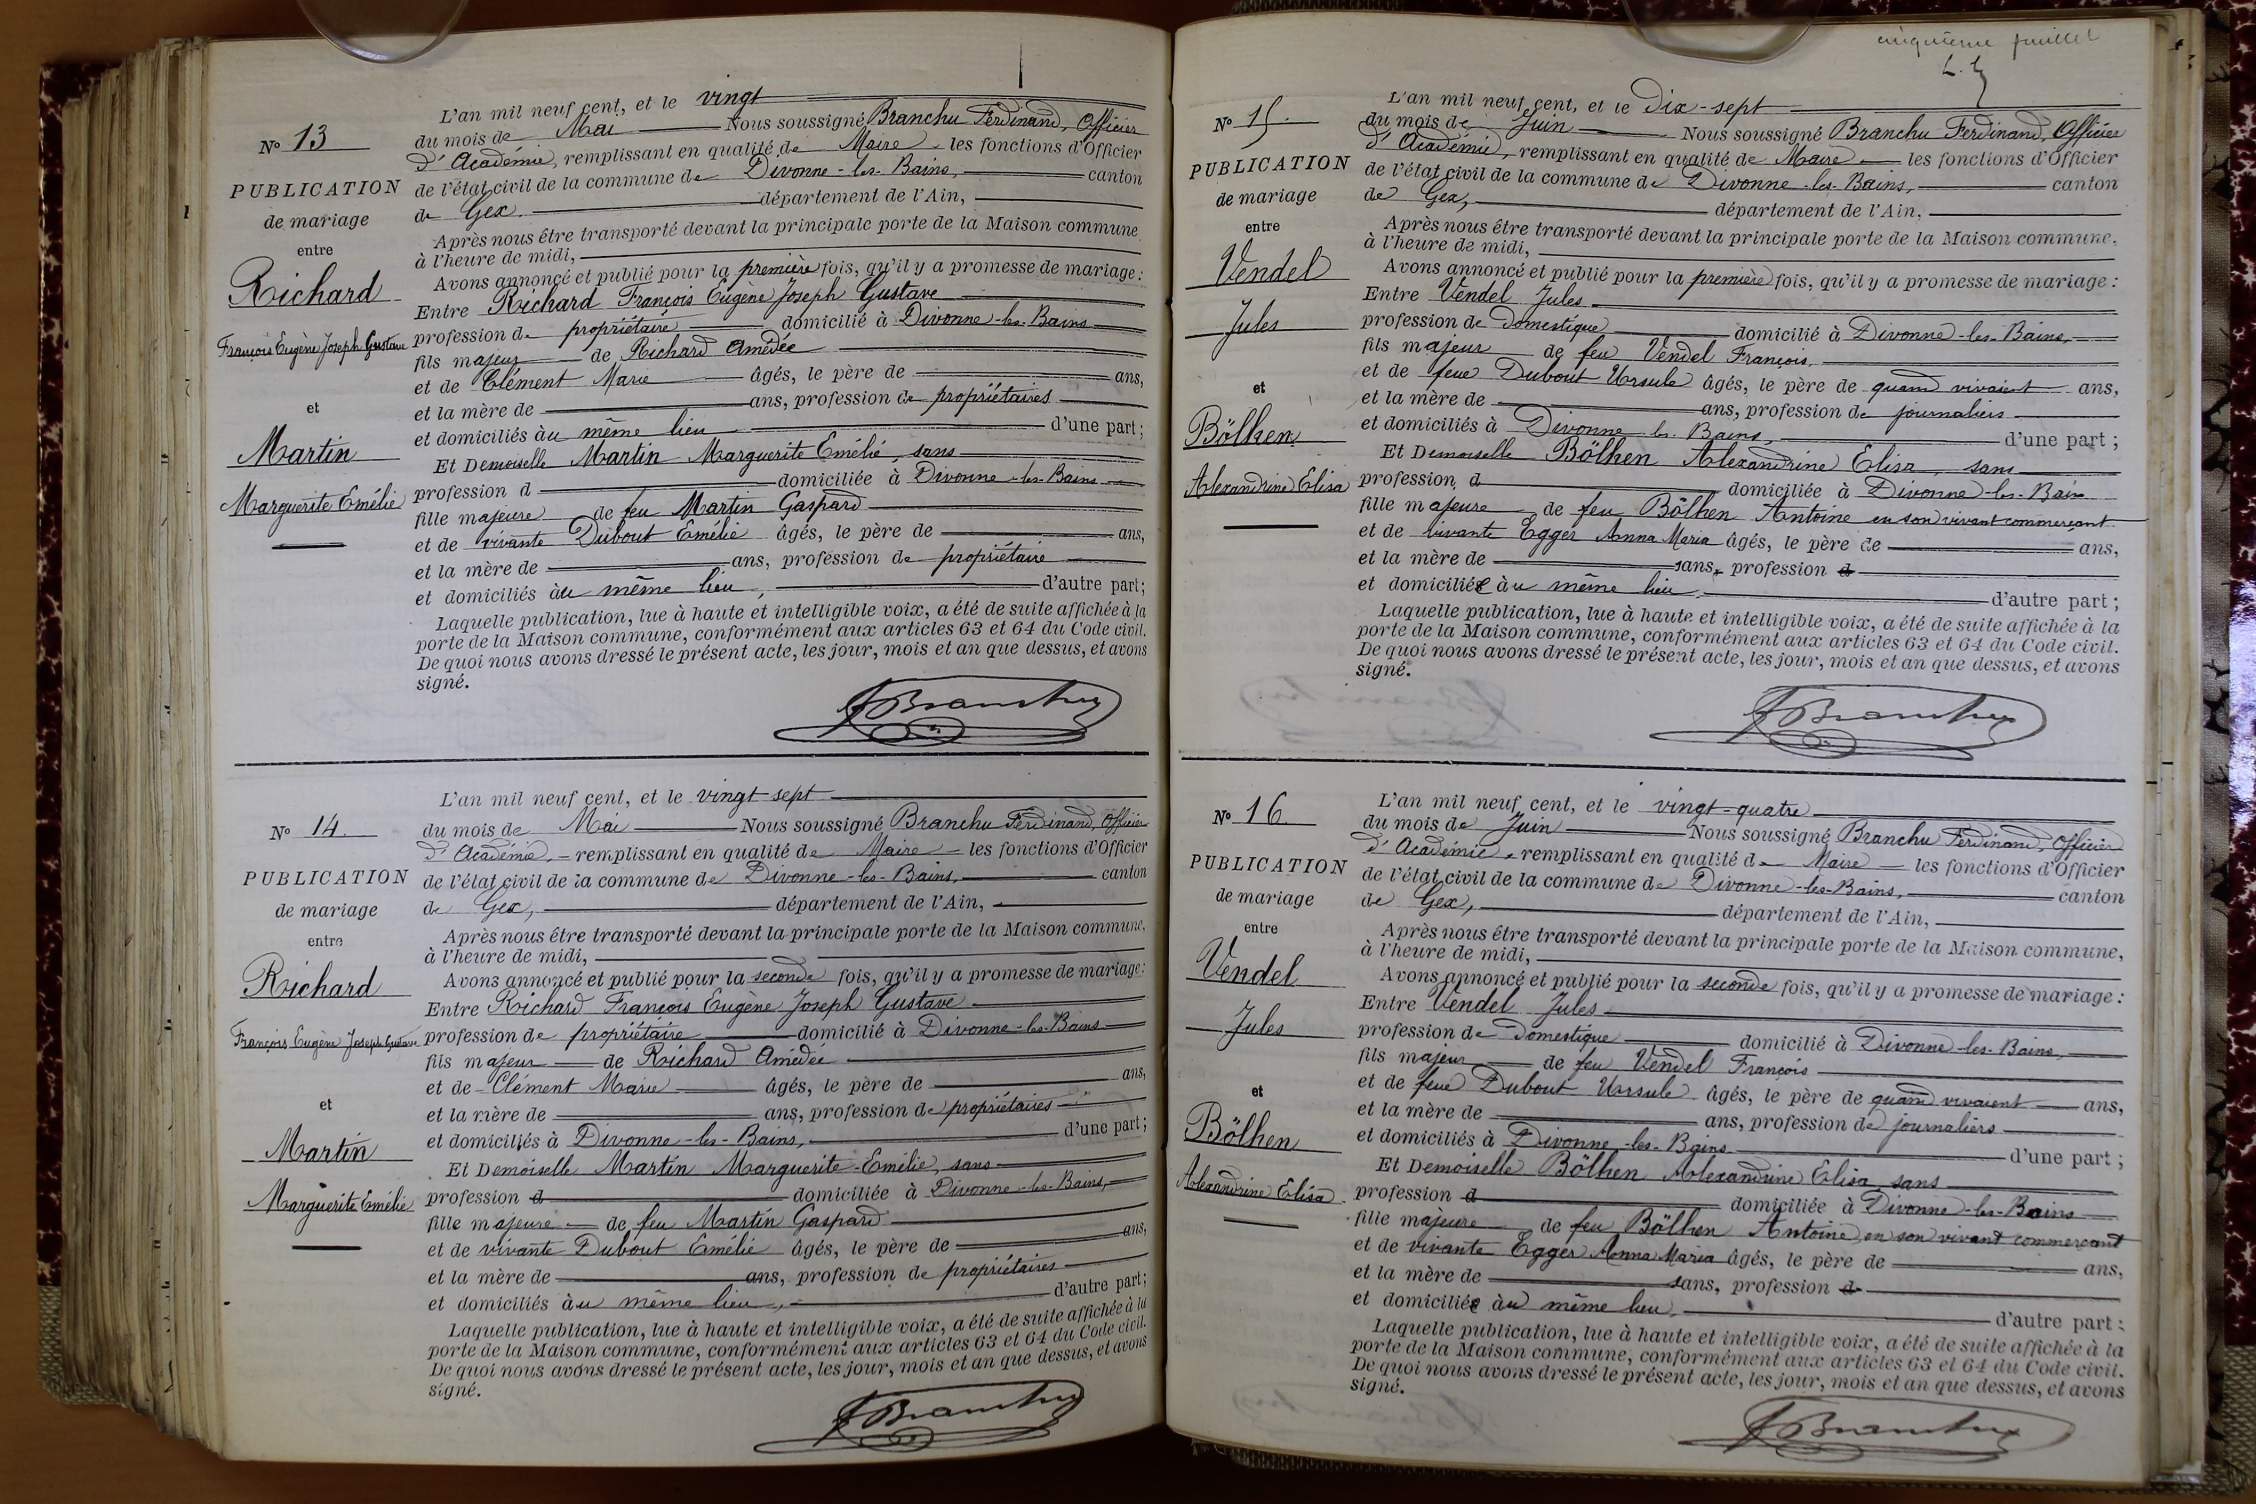 N° 13
PUBLICATION
de mariage
entre
Richard
François Eugène Joseph Gustave
et
Martin
Marguerite Emélie
L'an mil neuf cent, et le vingt
du mois de Mai Nous soussigné Branchu Ferdinand, Officier
d'Académie, remplissant en qualité de Maire les fonctions d'Officier
de l'état civil de la commune de Divonne-les-Bains, canton
de Gex. département de l'Ain,
Après nous être transporté devant la principale porte de la Maison commune
à l'heure de midi,
Avons annoncé et publié pour la première fois, qu'il y a promesse de mariage:
Entre Richard François Eugène Joseph Gustave
profession de propriétaire domicilié à Divonne-les-Bains
fils majeur de Richard Amédée
et de Clément Marie âgés, le père de ans,
et la mère de ans, profession de propriétaires
et domiciliés à au même lieu d'une part;
Et Demoiselle Martin Marguerite Emélie, sans
profession d domiciliée à Divonne-les-Bains
fille majeure de feu Martin Gaspard
et de vivante Dubout Emélie âgés, le père de ans,
et la mère de ans, profession de propriétaire
et domiciliés àu même lieu, d'autre part;
Laquelle publication, lue à haute et intelligible voix, a été de suite affichée à la
porte de la Maison commune, conformément aux articles 63 et 64 du Code civil.
De quoi nous avons dressé le présent acte, les jour, mois et an que dessus, et avons
signé.
FBranchu
N° 14
PUBLICATION
de mariage
entre
Richard
François Eugène Joseph Gustave
et
Martin
Marguerite Emélie
L'an mil neuf cent, et le vingt-sept
du mois de Mai Nous soussigné Branchu Ferdinand, Officier
d'Académie, remplissant en qualité de Maire les fonctions d'Officier
de l'état civil de la commune de Divonne-les-Bains, canton
de Gex, département de l'Ain,
Après nous être transporté devant la principale porte de la Maison commune,
à l'heure de midi,
Avons annoncé et publié pour la seconde fois, qu'il y a promesse de mariage:
Entre Richard François Eugène Joseph Gustave
profession de propriétaire domicilié à Divonne-les-Bains
fils majeur de Richard Amédée
et de Clément Marie âgés, le père de ans,
et la mère de ans, profession de propriétaires
et domiciliés à Divonne-les-Bains, d'une part;
Et Demoiselle Martin Marguerite-Emélie, sans
profession d domiciliée à Divonne-les-Bains,
fille majeure de feu Martin Gaspard
et de vivante Dubout Emélie âgés, le père de ans,
et la mère de ans, profession de propriétaires
et domiciliés àu même lieu, d'autre part;
Laquelle publication, lue à haute et intelligible voix, a été de suite affichée à la
porte de la Maison commune, conformément aux articles 63 et 64 du Code civil.
De quoi nous avons dressé le présent acte, les jour, mois et an que dessus, et avons
signé.
FBranchu
cinquième feuillet
N° 15.
PUBLICATION
de mariage
entre
Vendel
Jules
et
Bölhen
Alexandrine Elisa
L'an mil neuf cent, et le Dix-sept
du mois de Juin Nous soussigné Branchu Ferdinand, Officier
d'Académie, remplissant en qualité de Maire les fonctions d'Officier
de l'état civil de la commune de Divonne-les-Bains, canton
de Gex, département de l'Ain,
Après nous être transporté devant la principale porte de la Maison commune,
à l'heure de midi,
Avons annoncé et publié pour la première fois, qu'il y a promesse de mariage:
Entre Vendel Jules
profession de domestique domicilié à Divonne-les-Bains,
fils majeur de feu Vendel François,
et de feue Dubout Ursule âgés, le père de quand vivaient ans,
et la mère de ans, profession de journaliers
et domiciliés à Divonne-les-Bains, d'une part;
Et Demoiselle Bölhen Alexandrine Elisa, sans
profession d domiciliée à Divonne-les-Bains
fille majeure de feu Bölhen Antoine en son vivant commerçant
et de vivante Egger Anna Maria âgés, le père de ans,
et la mère de sans, profession d
et domiciliée àu même lieu, d'autre part;
Laquelle publication, lue à haute et intelligible voix, a été de suite affichée à la
porte de la Maison commune, conformément aux articles 63 et 64 du Code civil.
De quoi nous avons dressé le présent acte, les jour, mois et an que dessus, et avons
signé.
FBranchu
N° 16
PUBLICATION
de mariage
entre
Vendel
Jules
et
Bölhen
Alexandrine Elisa
L'an mil neuf cent, et le vingt-quatre
du mois de Juin Nous soussigné Branchu Ferdinand, Officier
d'Académie, remplissant en qualité d Maire les fonctions d'Officier
de l'état civil de la commune de Divonne-les-Bains, canton
de Gex, département de l'Ain,
Après nous être transporté devant la principale porte de la Maison commune,
à l'heure de midi,
Avons annoncé et publié pour la seconde fois, qu'il y a promesse de mariage:
Entre Vendel Jules
profession de domestique domicilié à Divonne-les-Bains,
fils majeur de feu Vendel François
et de feue Dubout Ursule âgés, le père de quand vivaient ans,
et la mère de ans, profession de journaliers
et domiciliés à Divonne-les-Bains d'une part;
Et Demoiselle Bölhen Alexandrine Elisa, sans
profession d domiciliée à Divonne-les-Bains
fille majeure de feu Bölhen Antoine en son vivant commerçant
et de vivante Egger Anna Maria âgés, le père de ans,
et la mère de sans, profession d
et domiciliée àu même lieu, d'autre part;
Laquelle publication, lue à haute et intelligible voix, a été de suite affichée à la
porte de la Maison commune, conformément aux articles 63 et 64 du Code civil.
De quoi nous avons dressé le présent acte, les jour, mois et an que dessus, et avons
signé.
FBranchu